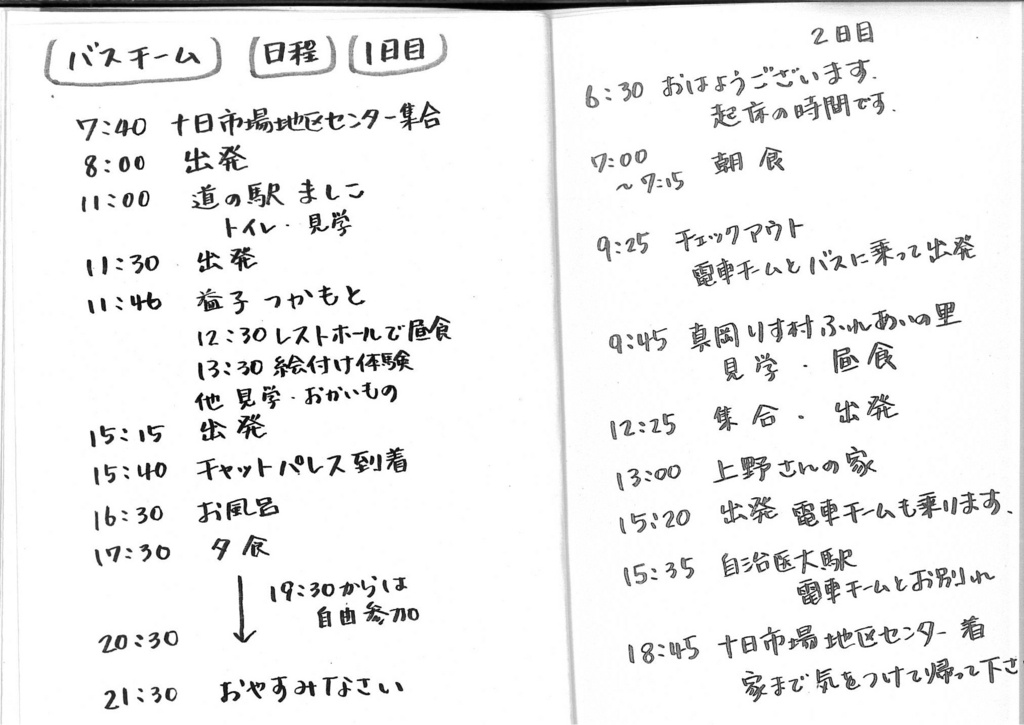 バスチーム 日程 1日目
7:40 十日市場地区センター集合
8:00 出発
11:00 道の駅 ましこ
トイレ・見学
11:30 出発
11:46 益子 つかもと
12:30 レストホールで昼食
13:30 絵付け体験
他 見学・おかいもの
15:15 出発
15:40 チャットパレス到着
16:30 お風呂
17:30 夕食
19:30からは
自由参加
20:30
21:30 おやすみなさい
2日目
6:30 おはようございます.
起床の時間です.
7:00
～7:15 朝食
9:25 チェックアウト
電車チームとバスに乗って出発
9:45 真岡りす村ふれあいの里
見学・昼食
12:25 集合・出発
13:00 上野さんの家
15:20 出発 電車チームも乗ります.
15:35 自治医大駅
電車チームとお別れ
18:45 十日市場地区センター着
家まで気をつけて帰って下さ